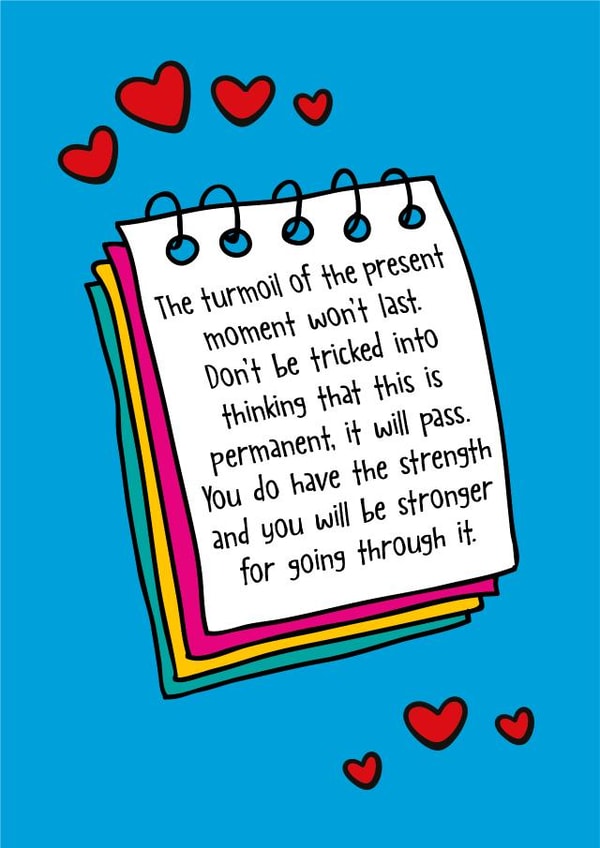 The turmoil of the present
moment won't last.
Don't be tricked into
thinking that this is
permanent, it will pass.
You do have the strength
and you will be stronger
for going through it.